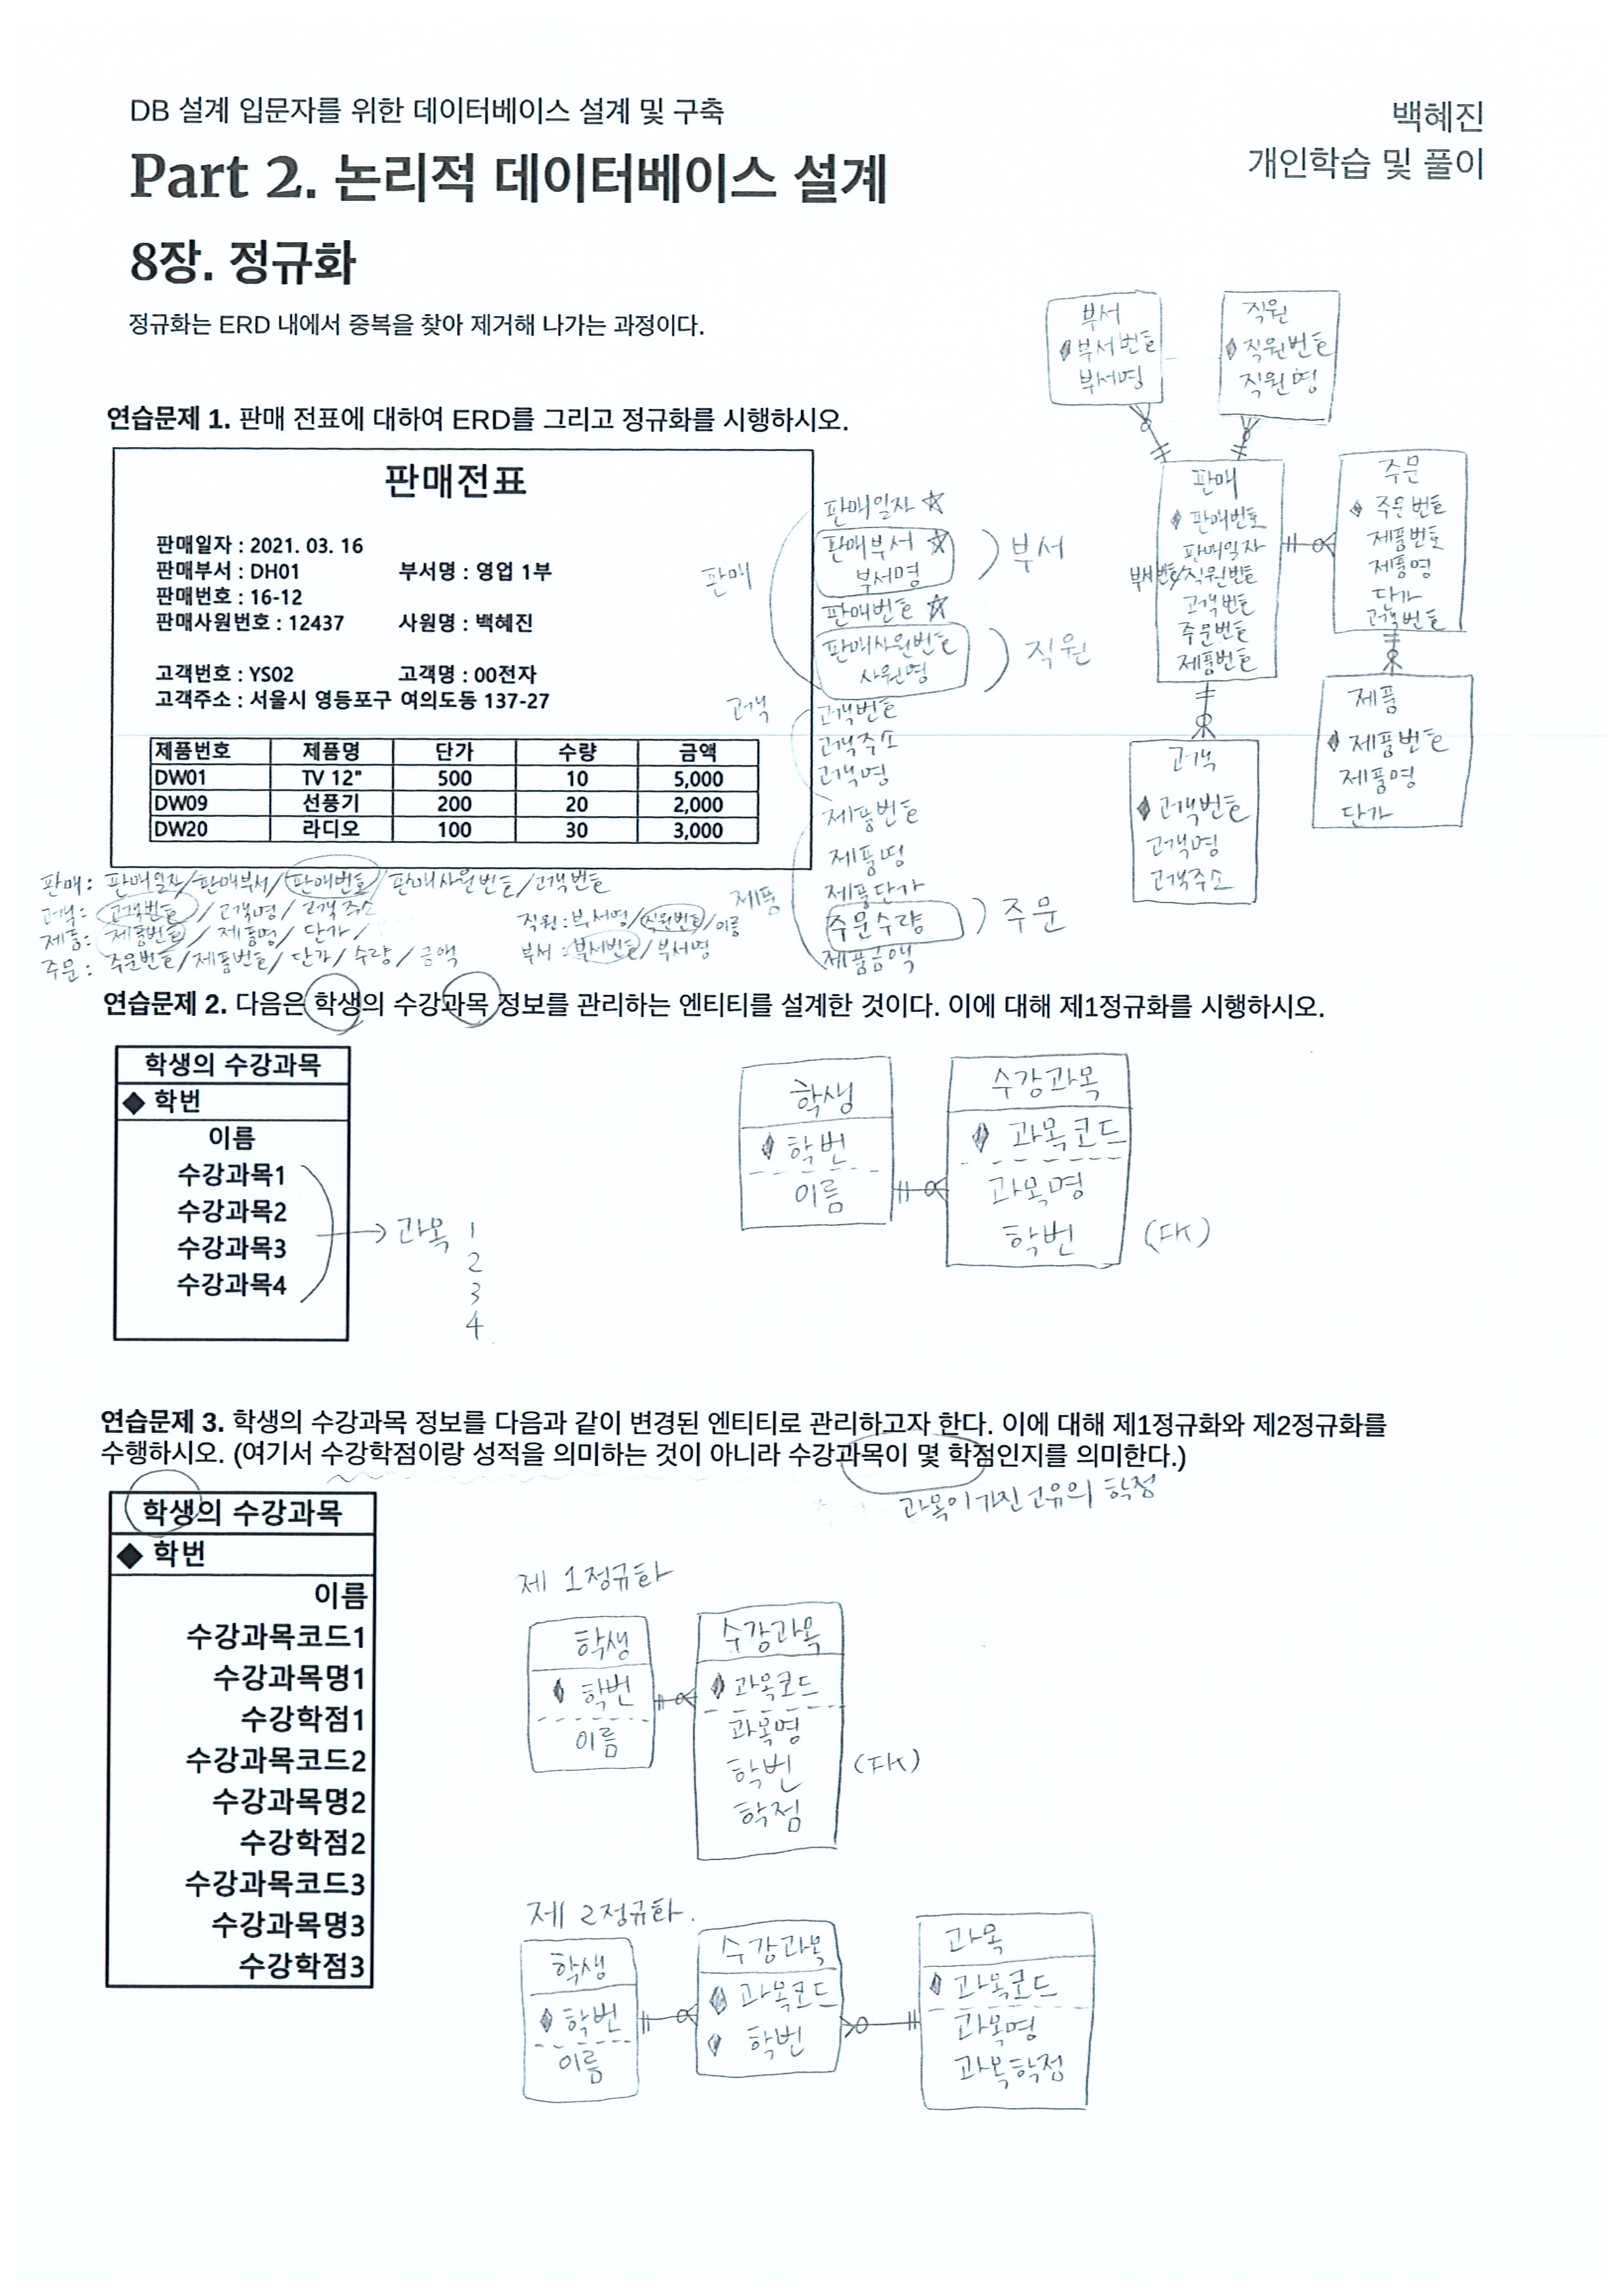 DB 설계 입문자를 위한 데이터베이스 설계 및 구축
백혜진
Part 2. 논리적 데이터베이스 설계
개인학습 및 풀이
8장. 정규화
정규화는 ERD 내에서 중복을 찾아 제거해 나가는 과정이다.
부서
◆부서번호
부서명
직원
◆직원번호
직원명
연습문제 1. 판매 전표에 대하여 ERD를 그리고 정규화를 시행하시오.
판매전표
판매일자 : 2021. 03. 16
판매부서 : DH01 부서명 : 영업 1부
판매번호 : 16-12
판매사원번호 : 12437 사원명 : 백혜진
고객번호 : YS02 고객명 : 00전자
고객주소 : 서울시 영등포구 여의도동 137-27
제품번호 제품명 단가 수량 금액
DW01 TV 12" 500 10 5,000
DW09 선풍기 200 20 2,000
DW20 라디오 100 30 3,000
판매
판매일자 ☆
판매부서 ☆
부서명
부서
판매번호 ☆
판매사원번호
사원명
직원
고객
고객번호
고객주소
고객명
제품
제품번호
제품명
제품단가
주문수량
주문
제품금액
판매
◆ 판매번호
판매일자
부서번호/직원번호
고객번호
주문번호
제품번호
주문
◆ 주문번호
제품번호
제품명
단가
고객번호
고객
◆고객번호
고객명
고객주소
제품
◆제품번호
제품명
단가
판매: 판매일자/판매부서/판매번호/판매사원번호/고객번호
고객: 고객번호/고객명/고객주소
제품: 제품번호/제품명/단가/
주문: 주문번호/제품번호/단가/수량/금액
직원: 부서명/직원번호/이름
부서: 부서번호/부서명
연습문제 2. 다음은 학생의 수강과목 정보를 관리하는 엔티티를 설계한 것이다. 이에 대해 제1정규화를 시행하시오.
학생의 수강과목
◆ 학번
이름
수강과목1
수강과목2
수강과목3
수강과목4
과목 1
2
3
4
학생
◆ 학번
이름
수강과목
◆ 과목코드
과목명
학번 (FK)
연습문제 3. 학생의 수강과목 정보를 다음과 같이 변경된 엔티티로 관리하고자 한다. 이에 대해 제1정규화와 제2정규화를
수행하시오. (여기서 수강학점이랑 성적을 의미하는 것이 아니라 수강과목이 몇 학점인지를 의미한다.)
과목이 가진 고유의 학점
학생의 수강과목
◆ 학번
이름
수강과목코드1
수강과목명1
수강학점1
수강과목코드2
수강과목명2
수강학점2
수강과목코드3
수강과목명3
수강학점3
제 1정규화
학생
◆ 학번
이름
수강과목
◆ 과목코드
과목명
학번 (FK)
학점
제 2정규화.
학생
◆ 학번
이름
수강과목
◆ 과목코드
◆ 학번
과목
◆ 과목코드
과목명
과목학점